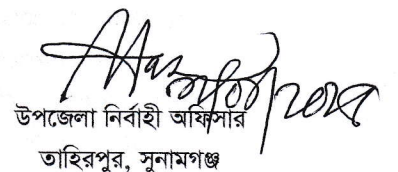 উপজেলা নির্বাহী অফিসার
তাহিরপুর, সুনামগঞ্জ